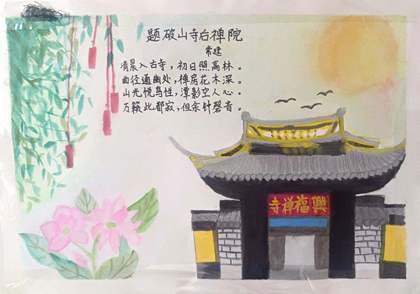 题破山寺后禅院
常建
清晨入古寺，初日照高林。
曲径通幽处，禅房花木深。
山光悦鸟性，潭影空人心。
万籁此都寂，但余钟磬音。
興福禅寺